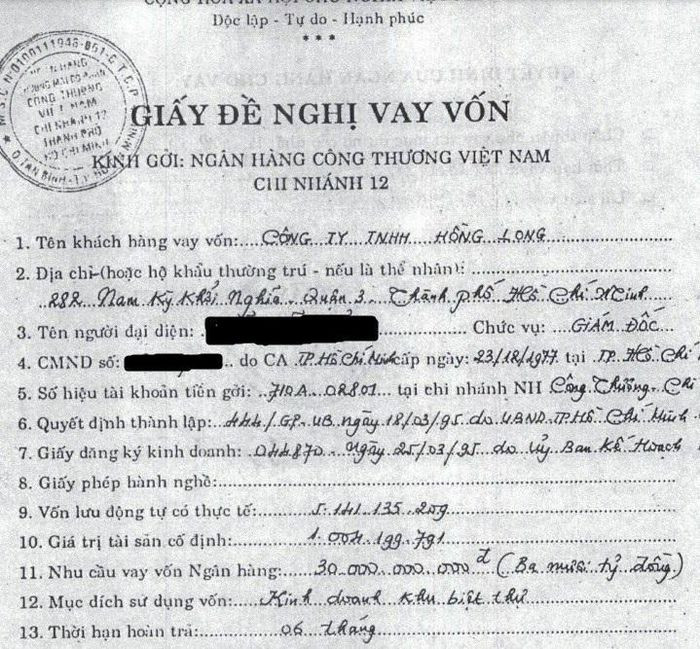 CỘNG HÒA XÃ HỘI CHỦ NGHĨA VIỆT NAM
Độc lập - Tự do - Hạnh phúc
***
M.S.C.N:0100111948-861-C.T.C.P
NGÂN HÀNG
THƯƠNG MẠI CỔ PHẦN
CÔNG THƯƠNG
VIỆT NAM
CHI NHÁNH 12
THÀNH PHỐ
HỒ CHÍ MINH
Q.TÂN BÌNH - T.P HỒ CHÍ MINH
GIẤY ĐỀ NGHỊ VAY VỐN
KÍNH GỞI: NGÂN HÀNG CÔNG THƯƠNG VIỆT NAM
CHI NHÁNH 12
1. Tên khách hàng vay vốn: CÔNG TY TNHH HỒNG LONG
2. Địa chỉ (hoặc hộ khẩu thường trú - nếu là thể nhân):
282 Nam Kỳ Khởi Nghĩa - Quận 3 - Thành phố Hồ Chí Minh
3. Tên người đại diện: Chức vụ: GIÁM ĐỐC
4. CMND số: do CA TP. Hồ Chí Minh cấp ngày: 23/12/1977 tại TP. Hồ Chí
5. Số hiệu tài khoản tiền gởi: 710A.02801 tại chi nhánh NH Công Thương - Chi
6. Quyết định thành lập: 444/GP-UB ngày 18/03/95 do UBND TP. Hồ Chí Minh
7. Giấy đăng ký kinh doanh: 044870 - Ngày 25/03/95 do Uỷ Ban Kế Hoạch
8. Giấy phép hành nghề:
9. Vốn lưu động tự có thực tế: 5.141.135.209
10. Giá trị tài sản cố định: 1.004.199.791
11. Nhu cầu vay vốn Ngân hàng: 30.000.000.000 đ (Ba mươi tỷ đồng)
12. Mục đích sử dụng vốn: Kinh doanh khu biệt thự
13. Thời hạn hoàn trả: 06 tháng